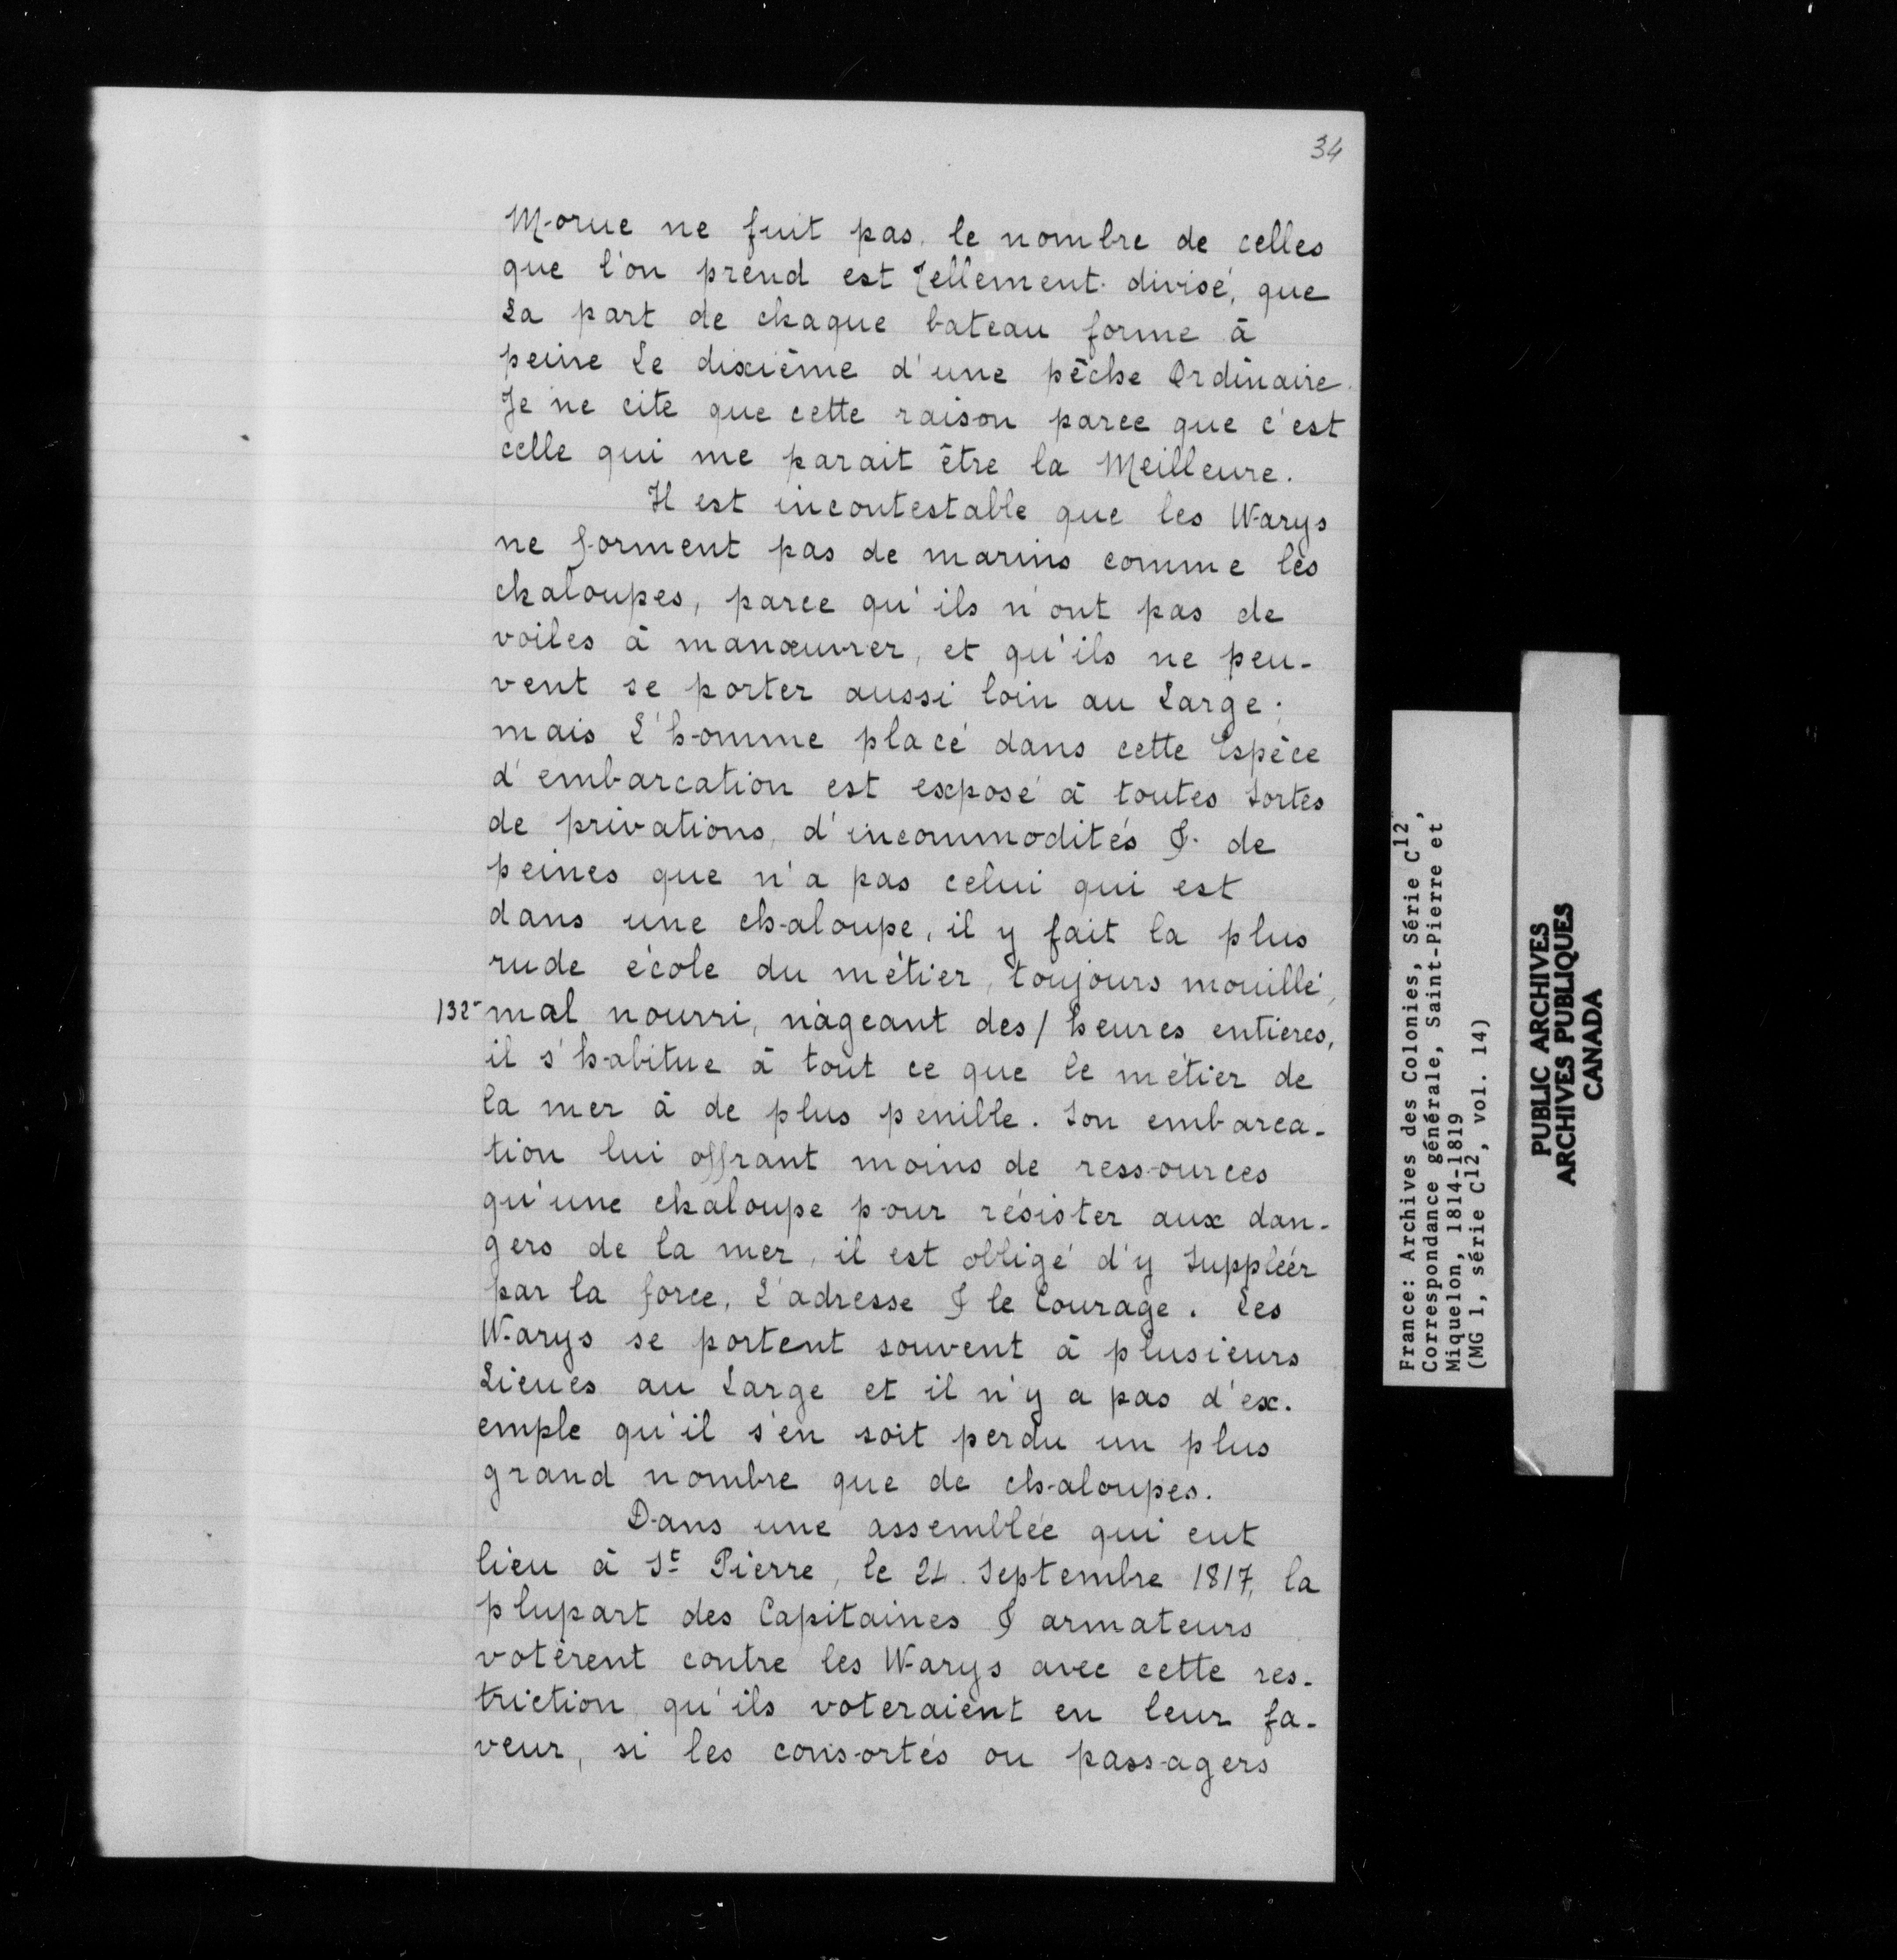 34
Morue ne fuit pas, le nombre de celles
que l'on prend est tellement divisé, que
La part de chaque bateau forme à
peine Le dixième d'une pêche Ordinaire.
Je ne cite que cette raison parce que c'est
celle qui me parait être la Meilleure.
Il est incontestable que les Warys
ne forment pas de marins comme les
chaloupes, parce qu'ils n'ont pas de
voiles à manœuvrer, et qu'ils ne peu-
vent se porter aussi loin au Large;
mais L'homme placé dans cette Espèce
d'embarcation est exposé à toutes Sortes
de privations, d'incommodités & de
peines que n'a pas celui qui est
dans une chaloupe, il y fait la plus
rude école du métier, toujours mouillé,
132 mal nourri, nageant des/ heures entières,
il s'habitue à tout ce que le métier de
la mer à de plus penible. Son embarca-
tion lui offrant moins de ressources
qu'une chaloupe pour résister aux dan-
gers de la mer, il est obligé d'y Suppléer
par la force, L'adresse & le Courage. Les
Warys se portent souvent à plusieurs
Lieues au Large et il n'y a pas d'ex-
emple qu'il s'en soit perdu un plus
grand nombre que de chaloupes.
Dans une assemblée qui eut
lieu à St Pierre, le 21 Septembre 1817, la
plupart des Capitaines & armateurs
votèrent contre les Warys avec cette res-
triction qu'ils voteraient en leur fa-
veur, si les consortés ou passagers
France: Archives des Colonies, Série C12,
Correspondance générale, Saint-Pierre et
Miquelon, 1814-1819
(MG 1, série C12, vol. 14)
PUBLIC ARCHIVES
ARCHIVES PUBLIQUES
CANADA